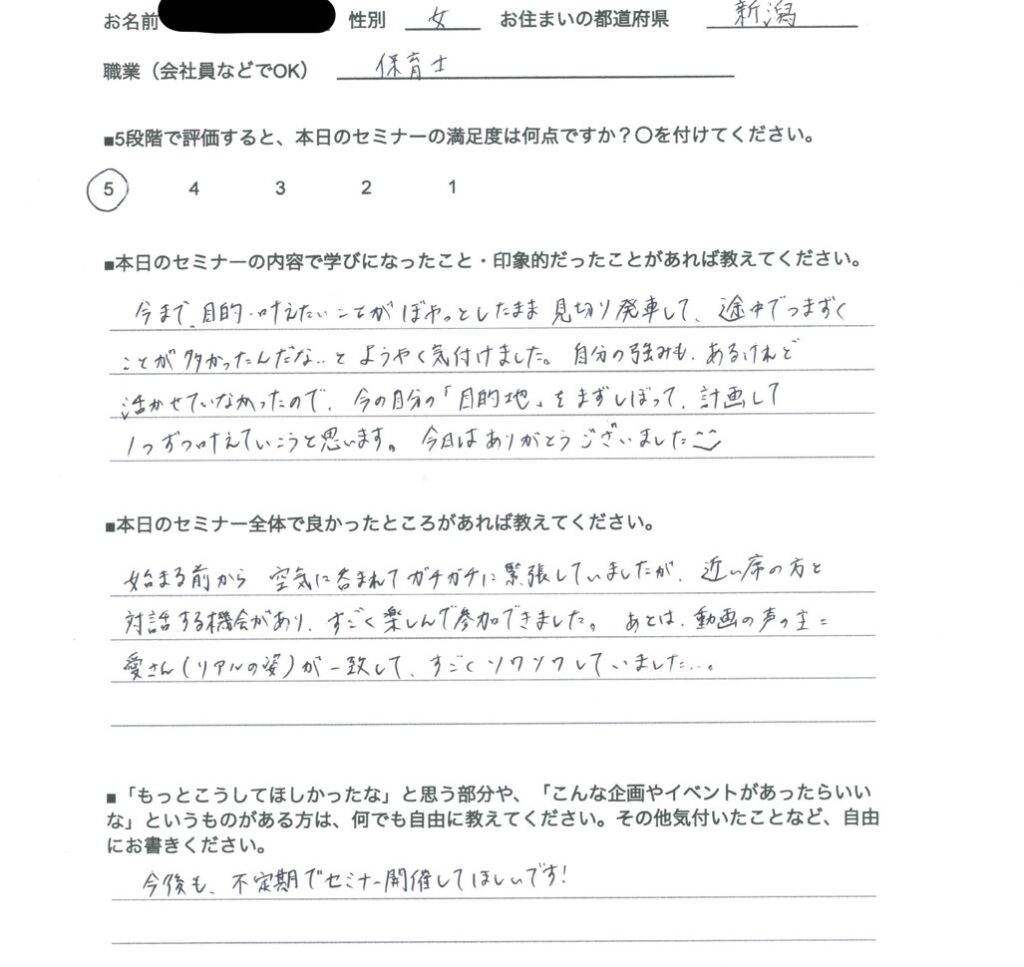 お名前 性別 女 お住まいの都道府県 新潟
職業（会社員などでOK） 保育士
■5段階で評価すると、本日のセミナーの満足度は何点ですか？〇を付けてください。
5 4 3 2 1
■本日のセミナーの内容で学びになったこと・印象的だったことがあれば教えてください。
今まで、目的・叶えたいことがぼやっとしたまま 見切り発車して、途中でつまずく
ことが多かったんだな‥と ようやく気付けました。自分の強みも、あるけれど
活かせていなかったので、今の自分の「目的地」をまずしぼって、計画して
1つずつ叶えていこうと思います。今日はありがとうございました
■本日のセミナー全体で良かったところがあれば教えてください。
始まる前から 空気に呑まれてガチガチに緊張していましたが、近い席の方と
対話する機会があり、すごく楽しんで参加できました。あとは、動画の声の主=
愛さん(リアルの姿)が一致して、すごくソワソワしていました…。
■「もっとこうしてほしかったな」と思う部分や、「こんな企画やイベントがあったらいい
な」というものがある方は、何でも自由に教えてください。その他気付いたことなど、自由
にお書きください。
今後も、不定期でセミナー開催してほしいです!